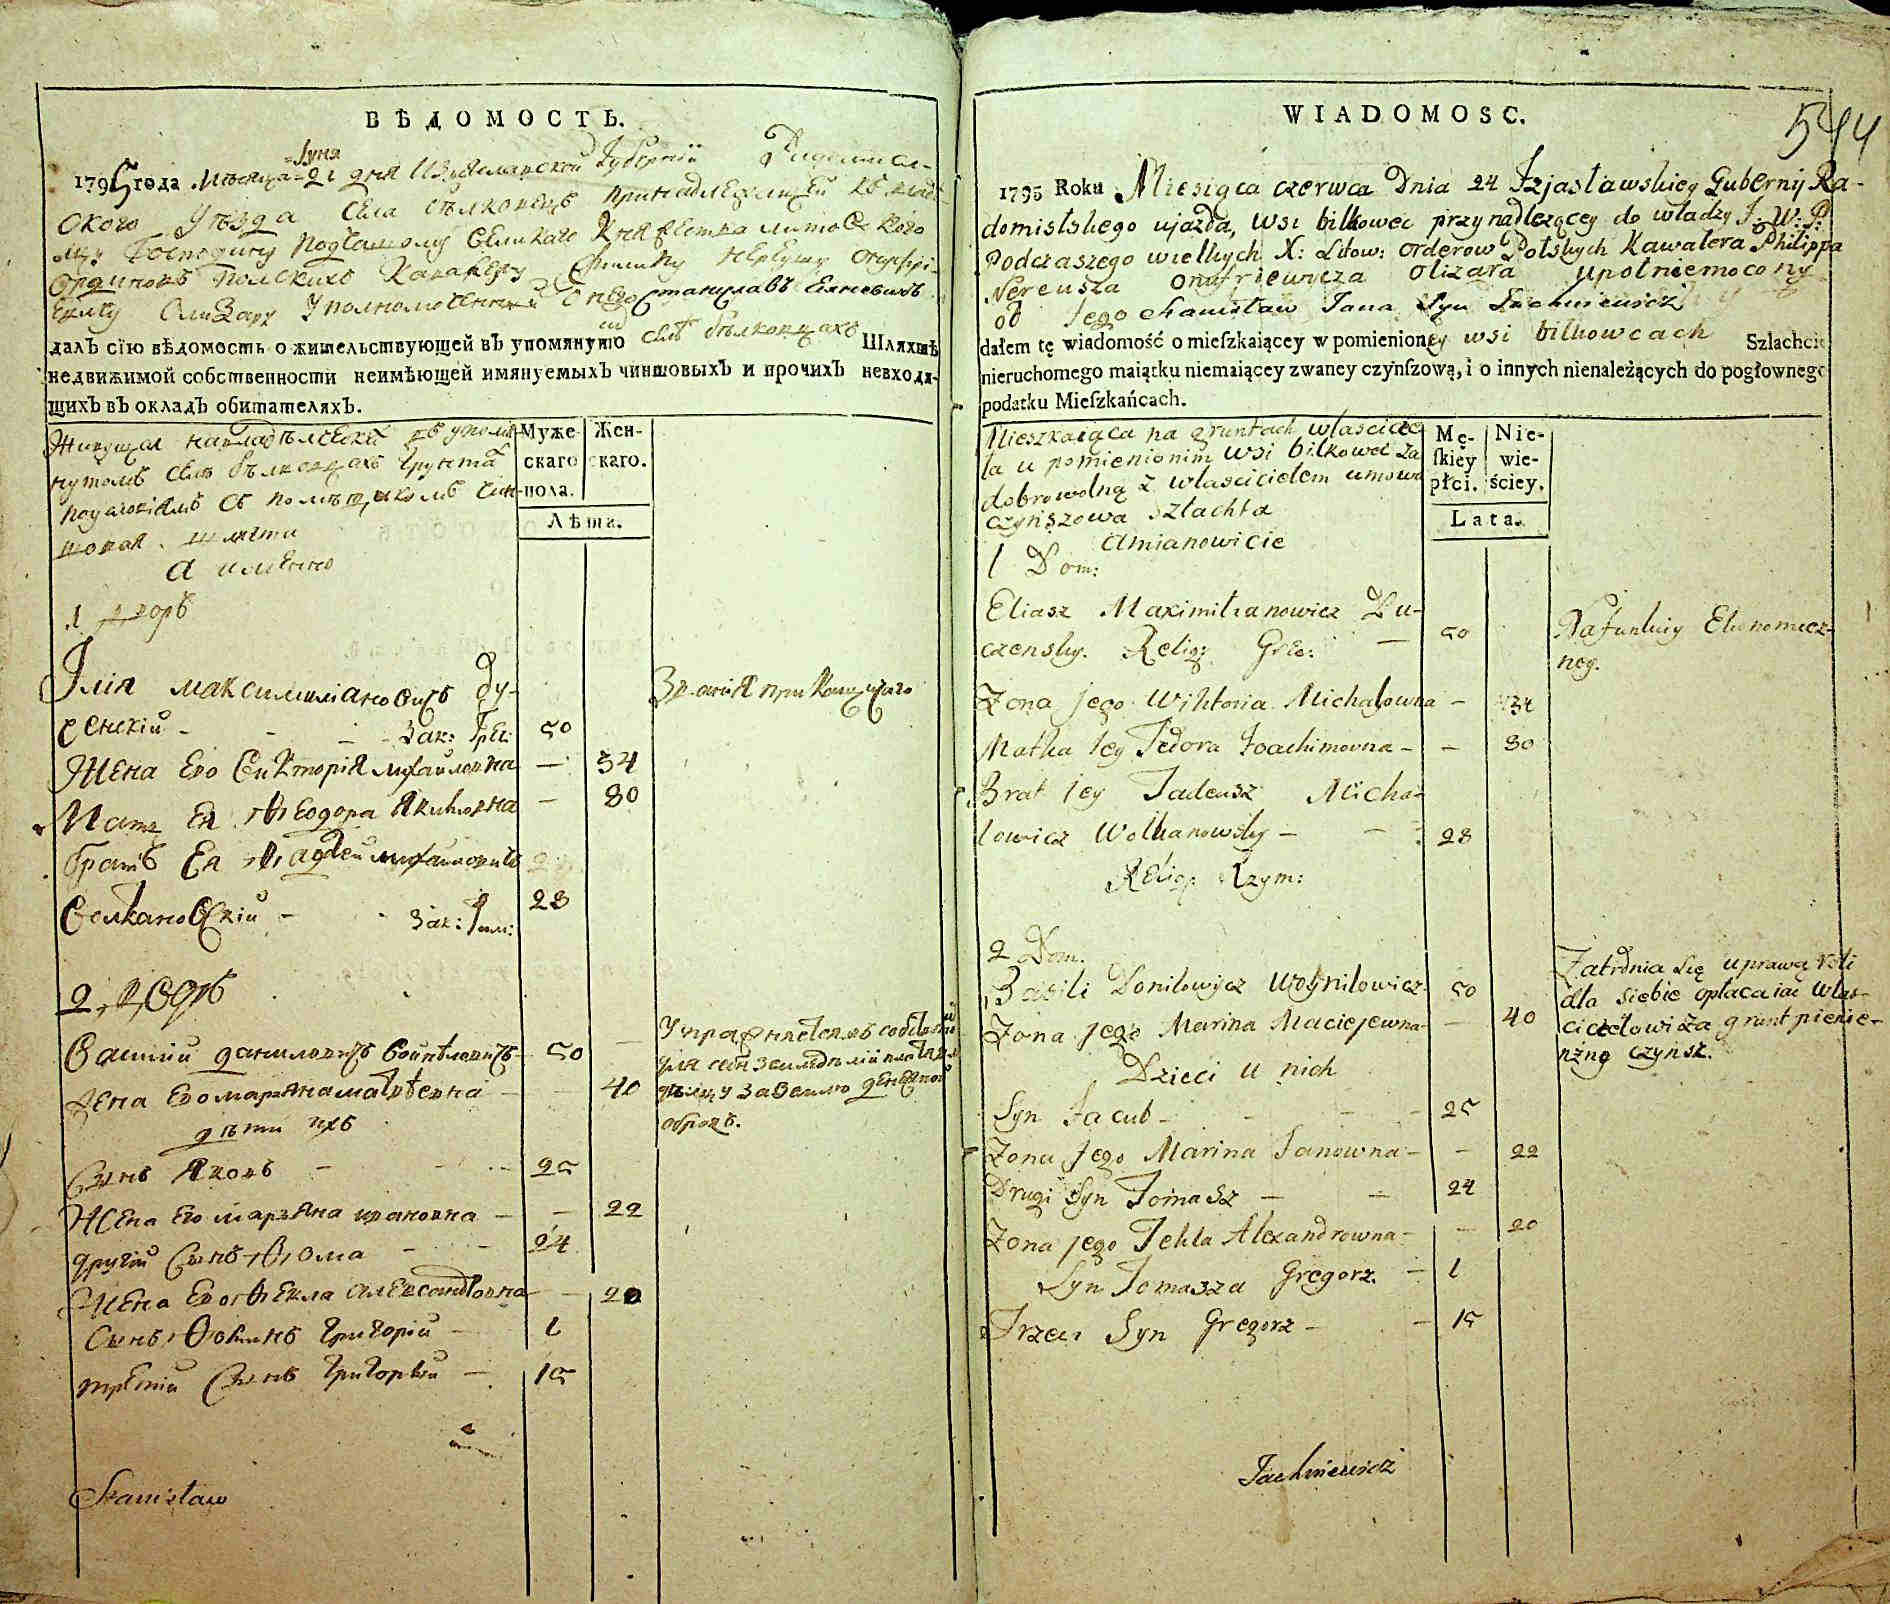 ВѢДОМОСТЬ.
1795 года Мѣсяца Iуня 21 дня Изяславской Губернїи Радомысл-
ского уѣзда села бѣлковецъ принадлежащей
Господину подчашому великаго Княжества литовского
ординовъ полскихъ Кавалеру Филипу Нереушу Онуфрi-
евичу Олизару уполномоченный Станиславъ
далъ сїю вѣдомость о жительствующей въ упомянутой селѣ бѣлковцахъ Шляхтѣ
недвижимой собственности неимѣющей имянуемыхъ чиншовыхъ и прочихъ невходя-
щихъ въ окладъ обитателяхъ.
Живущая на владѣлской въ упомя-
нутомъ селѣ бѣлковцахъ грунта
по условїямъ съ помѣщикомъ чин-
шовая шляхта
а именно
Муже-
скаго
пола.
Жен-
скаго.
Лѣта.
1 дворъ
Iлiя максимилiановичъ Лу-
ченскiй - - - Зак: Грек: 50
Жена Его Викторiя михайловна - 34
Мать Ея Ѳеодора Якимовна - 80
братъ Ея Ѳадей михайловичъ
Волкановскiй - - Зак: Рим: 28
2 дворъ
Василiй даниловичъ Войниловичъ 50
Упражняется въ собственно
для себя земледѣлiи
за землю денежной
оброкъ.
Жена Его марьяна матвѣевна - 40
дѣти ихъ
Сынъ Яковъ - - - 25
Жена Его марьяна ивановна - - 22
другiй Сынъ Ѳома - - 24
Жена Его Ѳекла александровна - - 20
Сынъ Ѳоминъ григорiй - 1
третiй Сынъ григорiй - 15
Stanisław
WIADOMOSC.
544
1795 Roku Miesiąca czerwca Dnia 24 Izjasławskiey Gubernij Ra-
domislskego ujazda, wsi bilkowec przynadlezącey do władzy J: W: P:
Podczaszego wielkych X: Litow: orderow Polskych Kawalera Philippa
Nereusza onufriewicza olizara upolniemocony
od Jego Stanisław Jana Syn Jachniewicz
dałem tę wiadomość o mieſzkaiącey w pomienioney wsi bilkowcach Szlachcie
nieruchomego maiątku niemaiącey zwaney czynſzową, i o innych nienależących do pogłownego
podatku Mieſzkańcach.
Mieszkaiąca na gruntach wlascicie
la u pomienionim wsi bilkowec za
dobrowolną z wlascicielem umowo
czynszowa szlachta
amianowicie
Mę-
ſkiey
płci.
Nie-
wie-
ściey.
Lata.
1 Dom:
Eliasz Maximilianowicz Lu-
czensky. Relig: Gree: - 50
Na funkciy Ekonomicz-
ney.
Zona jego Wiktoria Michałowna - 34
Matka Jey Fedora Joachimowna - - 80
Brat Jey Tadeusz Micha-
lowicz Wolkanowsky - - 28
Relig. Rzym:
2 Dom.
Basili Danilowicz Woynilowicz 50
Zatrdnia się uprawą roli
dla siebie opłacaiąc wlas-
cicielowi za grunt pienie-
nżny czynsz.
Zona jego Marina Maciejewna - - 40
Dzieci u nich
Syn Jacub - - - - 25
Zona Jego Marina Janowna - - 22
Drugi Syn Tomasz - - 24
Zona jego Tekla Alexandrowna - - 20
Syn Tomasza Gregorz. - 1
Trzeci Syn Gregorz - - 15
Jachniewicz